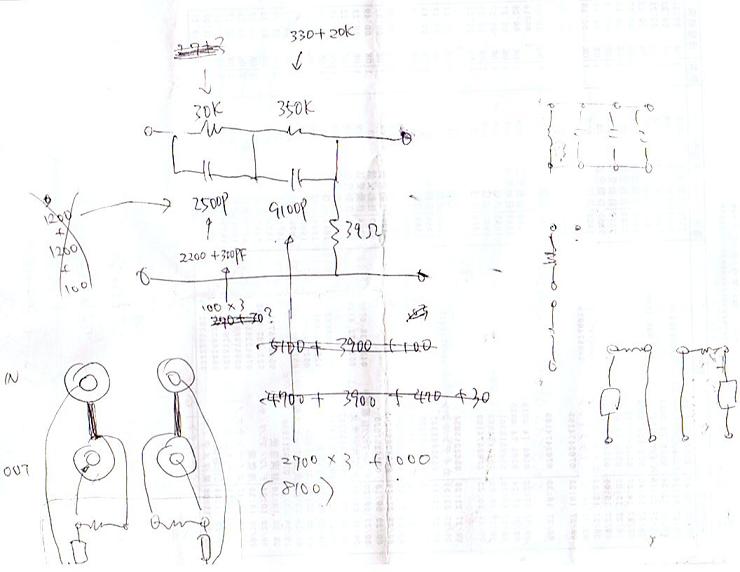 330+20K
27+3
30K
350K
2500P
9100P
39Ω
1200
+
1200
+
100
2200+300PF
100×3
270+30?
5100 + 3900 + 100
4700 + 3900 + 470 + 30
2700×3 +1000
(8100)
IN
OUT